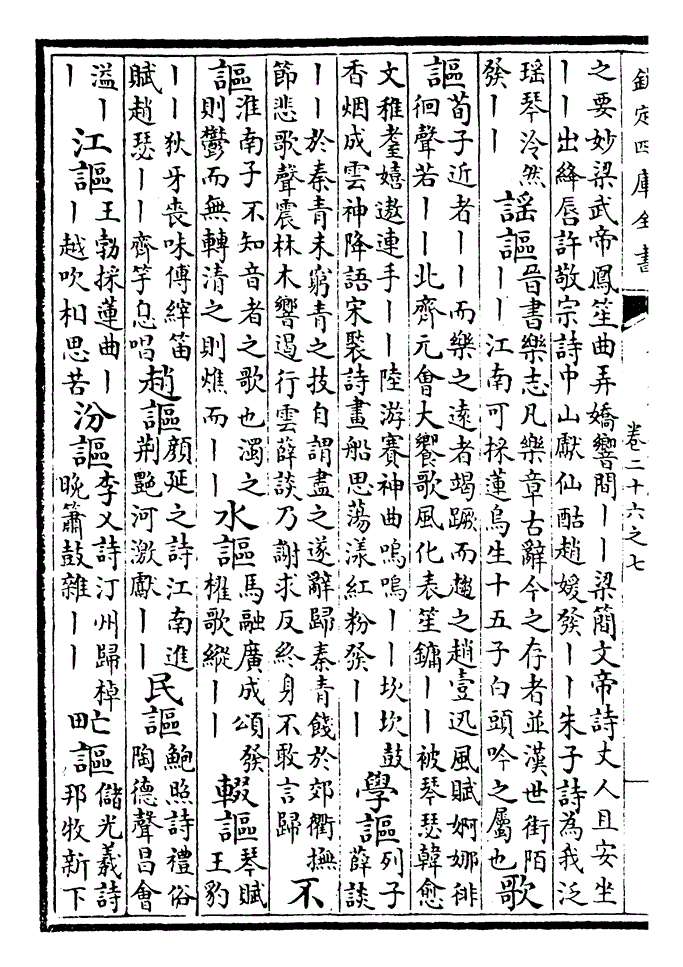 欽定四庫全書
卷二十六之七
之要妙梁武帝鳳笙曲弄嬌響間丨丨梁簡文帝詩丈人且安坐
丨丨出絳唇許敬宗詩中山獻仙酤趙媛發丨丨朱子詩為我泛
瑶琴泠然
發丨丨
謠謳
晉書樂志凡樂章古辭今之存者並漢世街陌
丨丨江南可採蓮烏生十五子白頭吟之屬也
歌
謳
荀子近者丨丨而樂之遠者竭蹶而趨之趙壹迅風賦婀娜徘
徊聲若丨丨北齊元會大饗歌風化表笙鏞丨丨被琴瑟韓愈
文稚耋嬉遨連手丨丨陸游賽神曲嗚嗚丨丨坎坎鼓
香烟成雲神降語宋褧詩畫船思蕩漾紅粉發丨丨
學謳
列子
薛談
丨丨於秦青未窮青之技自謂盡之遂辭歸秦青餞於郊衢撫
節悲歌聲震林木響遏行雲薛談乃謝求反終身不敢言歸
不
謳
淮南子不知音者之歌也濁之
則鬱而無轉清之則燋而丨丨
水謳
馬融廣成頌發
櫂歌縱丨丨
輟謳
琴賦
王豹
丨丨狄牙喪味傅縡笛
賦趙瑟丨丨齊竽息唱
趙謳
顔延之詩江南進
荆艷河激獻丨丨
民謳
鮑照詩禮俗
陶德聲昌會
溢丨
丨
江謳
王勃採蓮曲丨
丨越吹相思苦
汾謳
李乂詩汀州歸棹
晚簫鼓雜丨丨
甿謳
儲光羲詩
邦牧新下